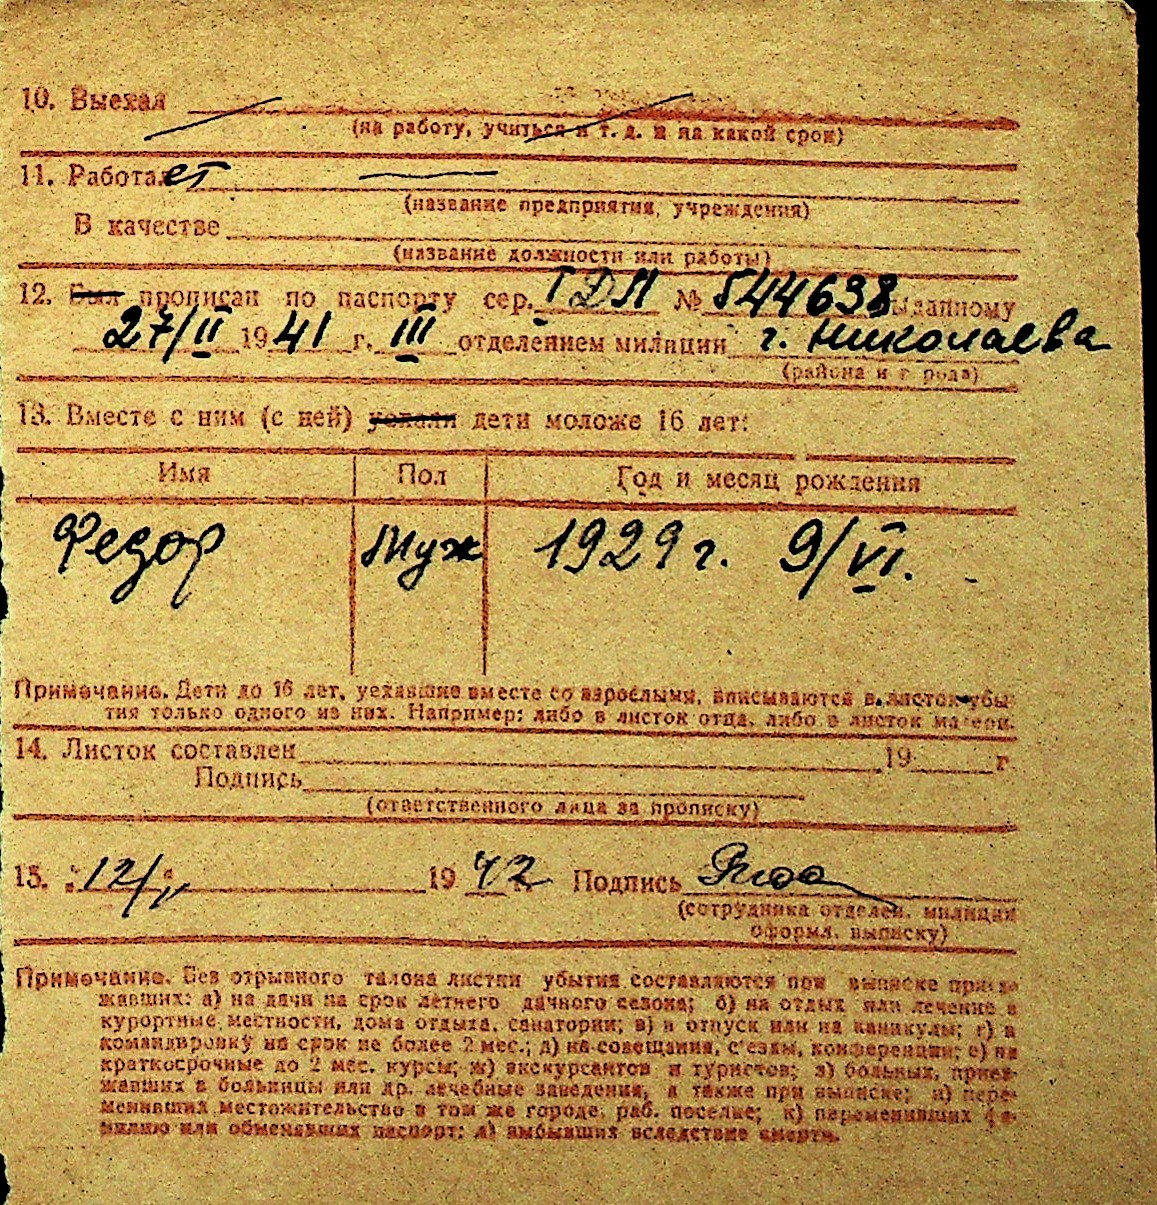 10. Выехал
(на работу, учиться и т. д. и на какой срок)
11. Работает —
(название предприятия, учреждения)
В качестве
(название должности или работы)
12. Был прописан по паспорту сер. ТДЛ № 544698 выданному
27/II 1941 г. III отделением милиции г. Николаева
(района и города)
13. Вместе с ним (с ней) уехали дети моложе 16 лет:
Имя Пол Год и месяц рождения
Федор Муж 1929 г. 9/VI.
Примечание. Дети до 16 лет, уехавшие вместе со взрослыми, вписываются в листок убы-
тия только одного из них. Например: либо в листок отца, либо в листок матери.
14. Листок составлен 19 г.
Подпись
(ответственного лица за прописку)
15. "12/ 1942 Подпись
(сотрудника отделен. милиции
оформл. выписку)
Примечание. Без отрывного талона листки убытия составляются при выписке приез-
жавших: а) на дачи на срок летнего дачного сезона; б) на отдых или лечение в
курортные местности, дома отдыха, санатории; в) в отпуск или на каникулы; г) в
командировку на срок не более 2 мес.; д) на совещания, с'езды, конференции; е) на
краткосрочные до 2 мес. курсы; ж) экскурсантов и туристов; з) больных, приез-
жавших в больницы или др. лечебные заведения, а также при выписке; и) пере-
менивших местожительство в том же городе, раб. поселке; к) переменивших фа-
милию или обменявших паспорт; л) выбывших вследствие смерти.